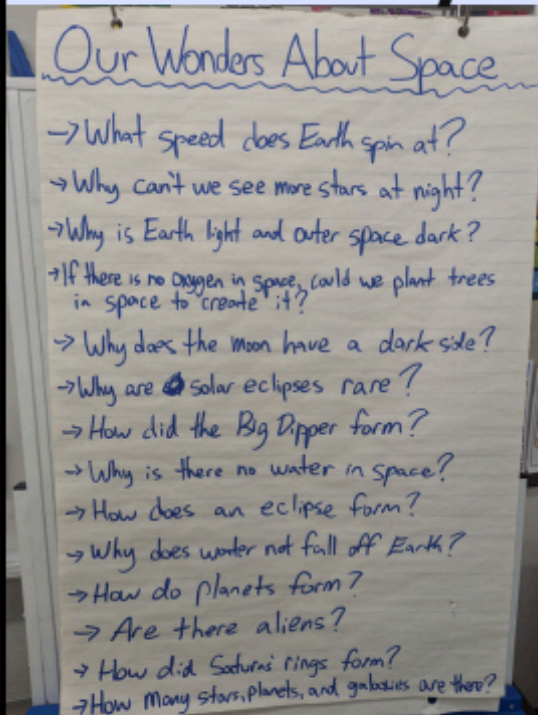 Our Wonders About Space
→ What speed does Earth spin at?
→ Why can't we see more stars at night?
→ Why is Earth light and outer space dark?
→ If there is no oxygen in space, could we plant trees
in space to "create" it?
→ Why does the moon have a dark side?
→ Why are solar eclipses rare?
→ How did the Big Dipper form?
→ Why is there no water in space?
→ How does an eclipse form?
→ Why does water not fall off Earth?
→ How do planets form?
→ Are there aliens?
→ How did Saturns' rings form?
→ How many stars, planets, and galaxies are there?